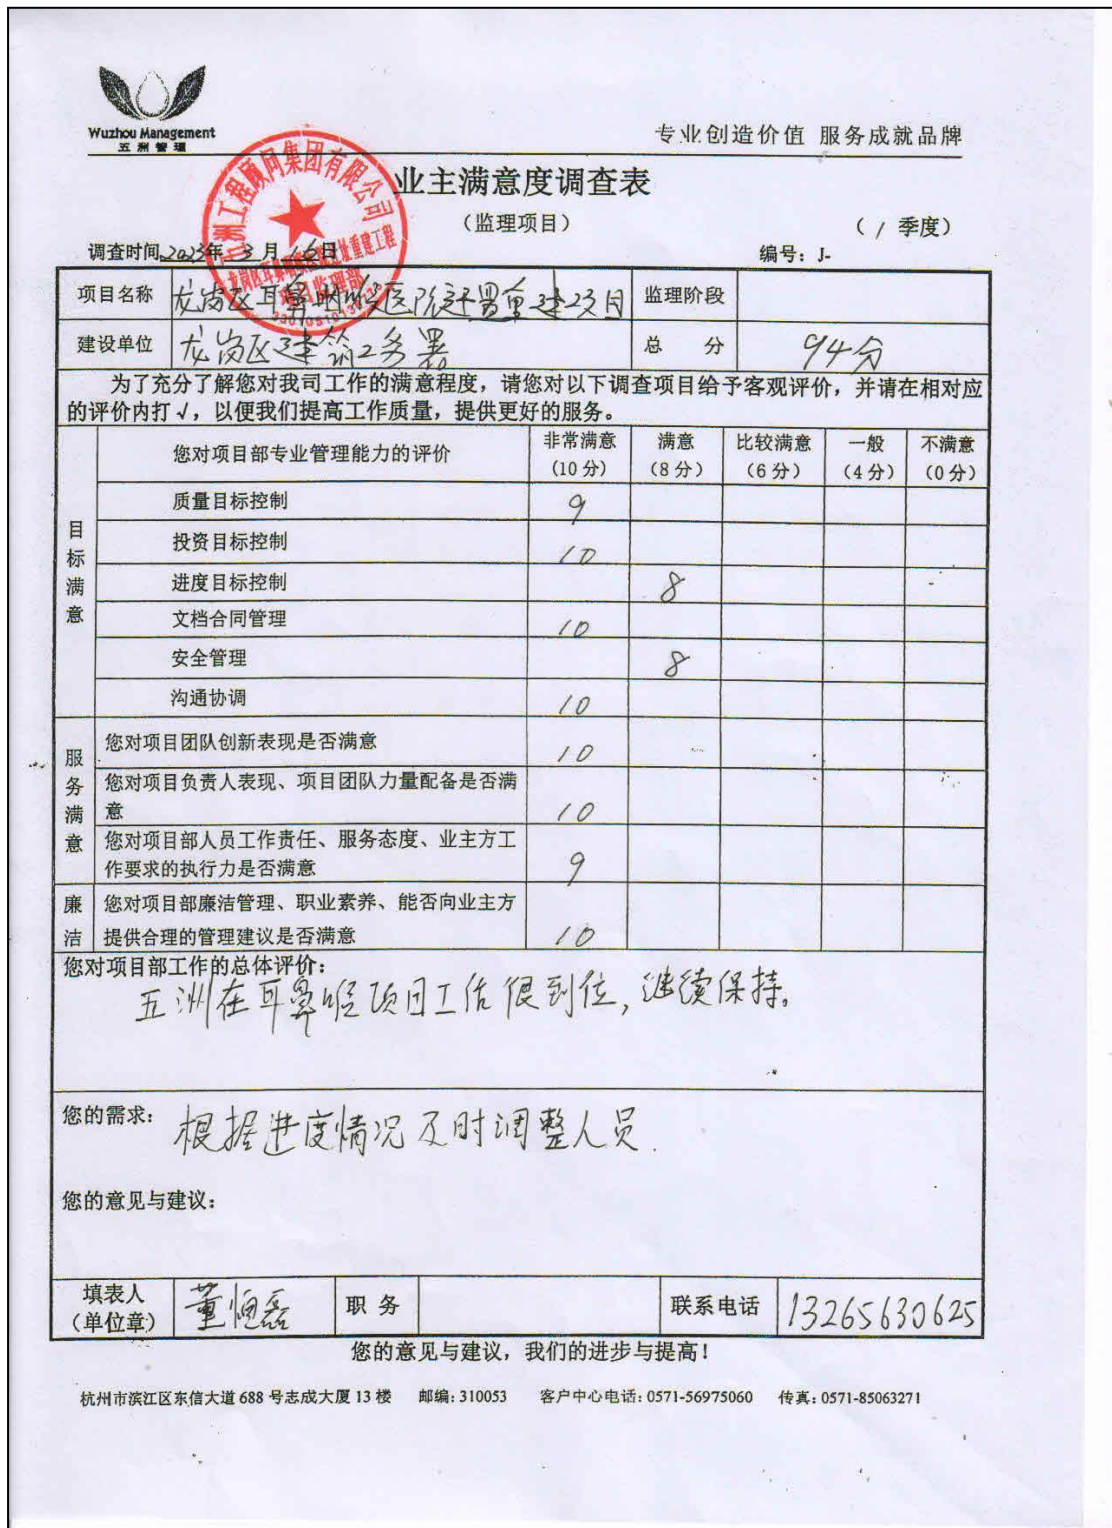 Wuzhou Management
五洲管理
专业创造价值 服务成就品牌
业主满意度调查表
(监理项目)
( 1 季度)
调查时间 2023年 3 月 16日
编号: J-
五洲工程顾问集团有限公司
项目监理部
项目名称 龙岗区耳鼻咽喉医院迁址重建项目 监理阶段
建设单位 龙岗区建筑工务署 总 分 94分
为了充分了解您对我司工作的满意程度,请您对以下调查项目给予客观评价,并请在相对应
的评价内打√,以便我们提高工作质量,提供更好的服务。
目标满意
您对项目部专业管理能力的评价 非常满意 (10 分) 满意 (8 分) 比较满意 (6 分) 一般 (4 分) 不满意 (0 分)
质量目标控制 9
投资目标控制 10
进度目标控制 8
文档合同管理 10
安全管理 8
沟通协调 10
服务满意
您对项目团队创新表现是否满意 10
您对项目负责人表现、项目团队力量配备是否满
意 10
您对项目部人员工作责任、服务态度、业主方工
作要求的执行力是否满意 9
廉洁
您对项目部廉洁管理、职业素养、能否向业主方
提供合理的管理建议是否满意 10
您对项目部工作的总体评价:
五洲在耳鼻喉项目工作很到位,继续保持。
您的需求: 根据进度情况及时调整人员.
您的意见与建议:
填表人 (单位章) 董恒磊 职 务 联系电话 13265630625
您的意见与建议,我们的进步与提高!
杭州市滨江区东信大道 688 号志成大厦 13 楼 邮编: 310053 客户中心电话: 0571-56975060 传真: 0571-85063271